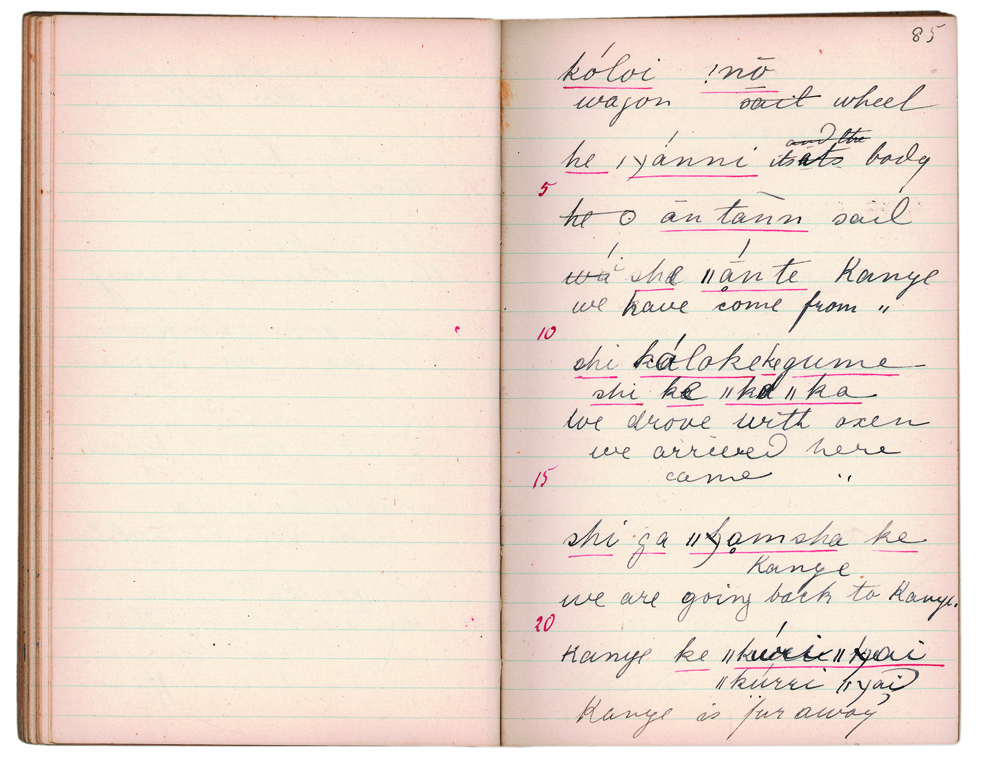 85
kóloi !nō
wagon sail wheel
and the
he /χánni its body
5
he o ān tānn sail
wá she ǁánte Kanye
we have come from "
10
shi kóloke ke gume
shi ke ǁka ǁka
we drove with oxen
we arrived here
15
came "
shi ga ǁχamsha ke
Kanye
we are going back to Kanye.
20
Kanye ke ǁkúrri ǁχai
ǁkúrri ǁχai
Kanye is far away